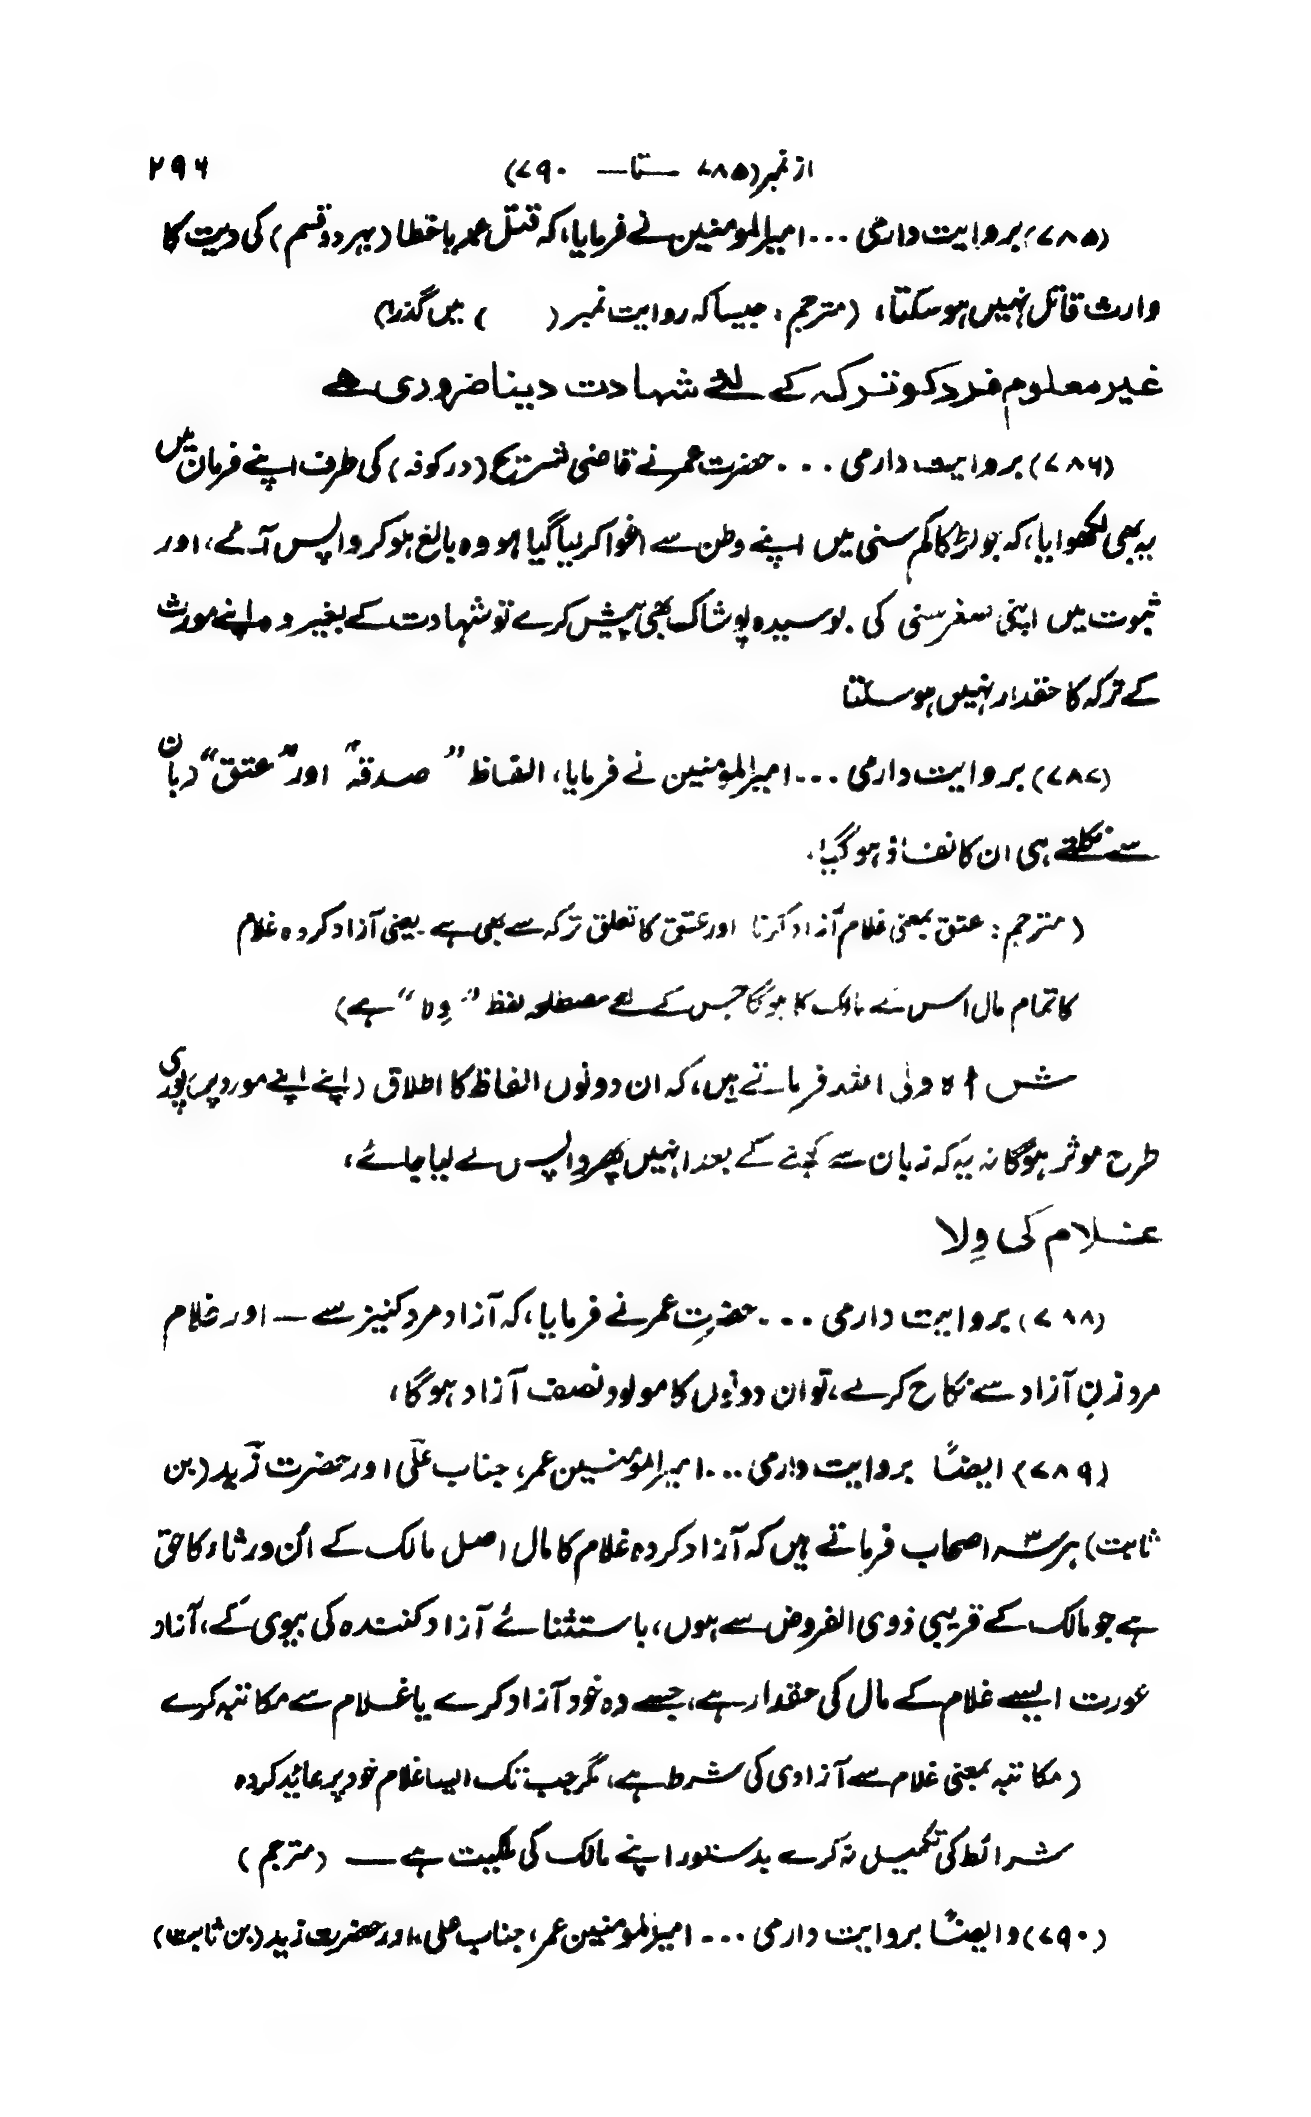 از نمبر (۷۸۵ — تا — ۷۹۰) ۲۹۶
(۷۸۵) بروایت دارمی ... امیرالمومنین نے فرمایا، کہ قتل عمد یا خطا (بہر دو قسم) کی دیت کا
وارث قاتل نہیں ہو سکتا، (مترجم: جیسا کہ روایت نمبر ( ) میں گذرا)
غیر معلوم فرد کو ترکہ کے لئے شہادت دینا ضروری ہے
(۷۸۶) بروایت دارمی ... حضرت عمر نے قاضی شریح (در کوفہ) کی طرف اپنے فرمان میں
یہ بھی لکھوایا، کہ جو لڑکا کم سنی میں اپنے وطن سے اغوا کر لیا گیا ہو وہ بالغ ہو کر واپس آئے، اور
ثبوت میں اپنی صغر سنی کی بوسیدہ پوشاک بھی پیش کرے تو شہادت کے بغیر وہ اپنے مورث
کے ترکہ کا حقدار نہیں ہو سکتا
(۷۸۷) بروایت دارمی ... امیرالمومنین نے فرمایا، الفاظ ”صدقہ“ اور ”عتق“ زبان
سے نکلتے ہی ان کا نفاذ ہو گیا.
(مترجم: عتق بمعنی غلام آزاد کرنا اور عتق کا تعلق ترکہ سے بھی ہے یعنی آزاد کردہ غلام
کا تمام مال اس کے مالک کا ہو گا جس کے لئے مصطلحہ لفظ ”وِلا“ ہے)
شاہ ولی اللہ فرماتے ہیں، کہ ان دونوں الفاظ کا اطلاق (اپنے اپنے مورد پر) پوری
طرح موثر ہو گا نہ یہ کہ زبان سے کہنے کے بعد انہیں پھر واپس لے لیا جائے،
غلام کی وِلا
(۷۸۸) بروایت دارمی ... حضرت عمر نے فرمایا، کہ آزاد مرد کنیز سے — اور غلام
مرد زنِ آزاد سے نکاح کرے، تو ان دونوں کا مولود نصف آزاد ہو گا،
(۷۸۹) ایضاً بروایت دارمی ... امیرالمؤمنین عمر، جناب علی اور حضرت زید (بن
ثابت) ہر سہ اصحاب فرماتے ہیں کہ آزاد کردہ غلام کا مال اصل مالک کے اُن ورثاء کا حق
ہے جو مالک کے قریبی ذوی الفروض سے ہوں، باستثنائے آزاد کنندہ کی بیوی کے، آزاد
عورت ایسے غلام کے مال کی حقدار ہے، جسے وہ خود آزاد کرے یا غلام سے مکاتبہ کرے
(مکاتبہ بمعنی غلام سے آزادی کی شرط ہے، مگر جب تک ایسا غلام خود پر عائد کردہ
شرائط کی تکمیل نہ کرے بدستور اپنے مالک کی ملکیت ہے — (مترجم)
(۷۹۰) و ایضاً بروایت دارمی ... امیرالمومنین عمر، جناب علی، اور حضرت زید (بن ثابت)